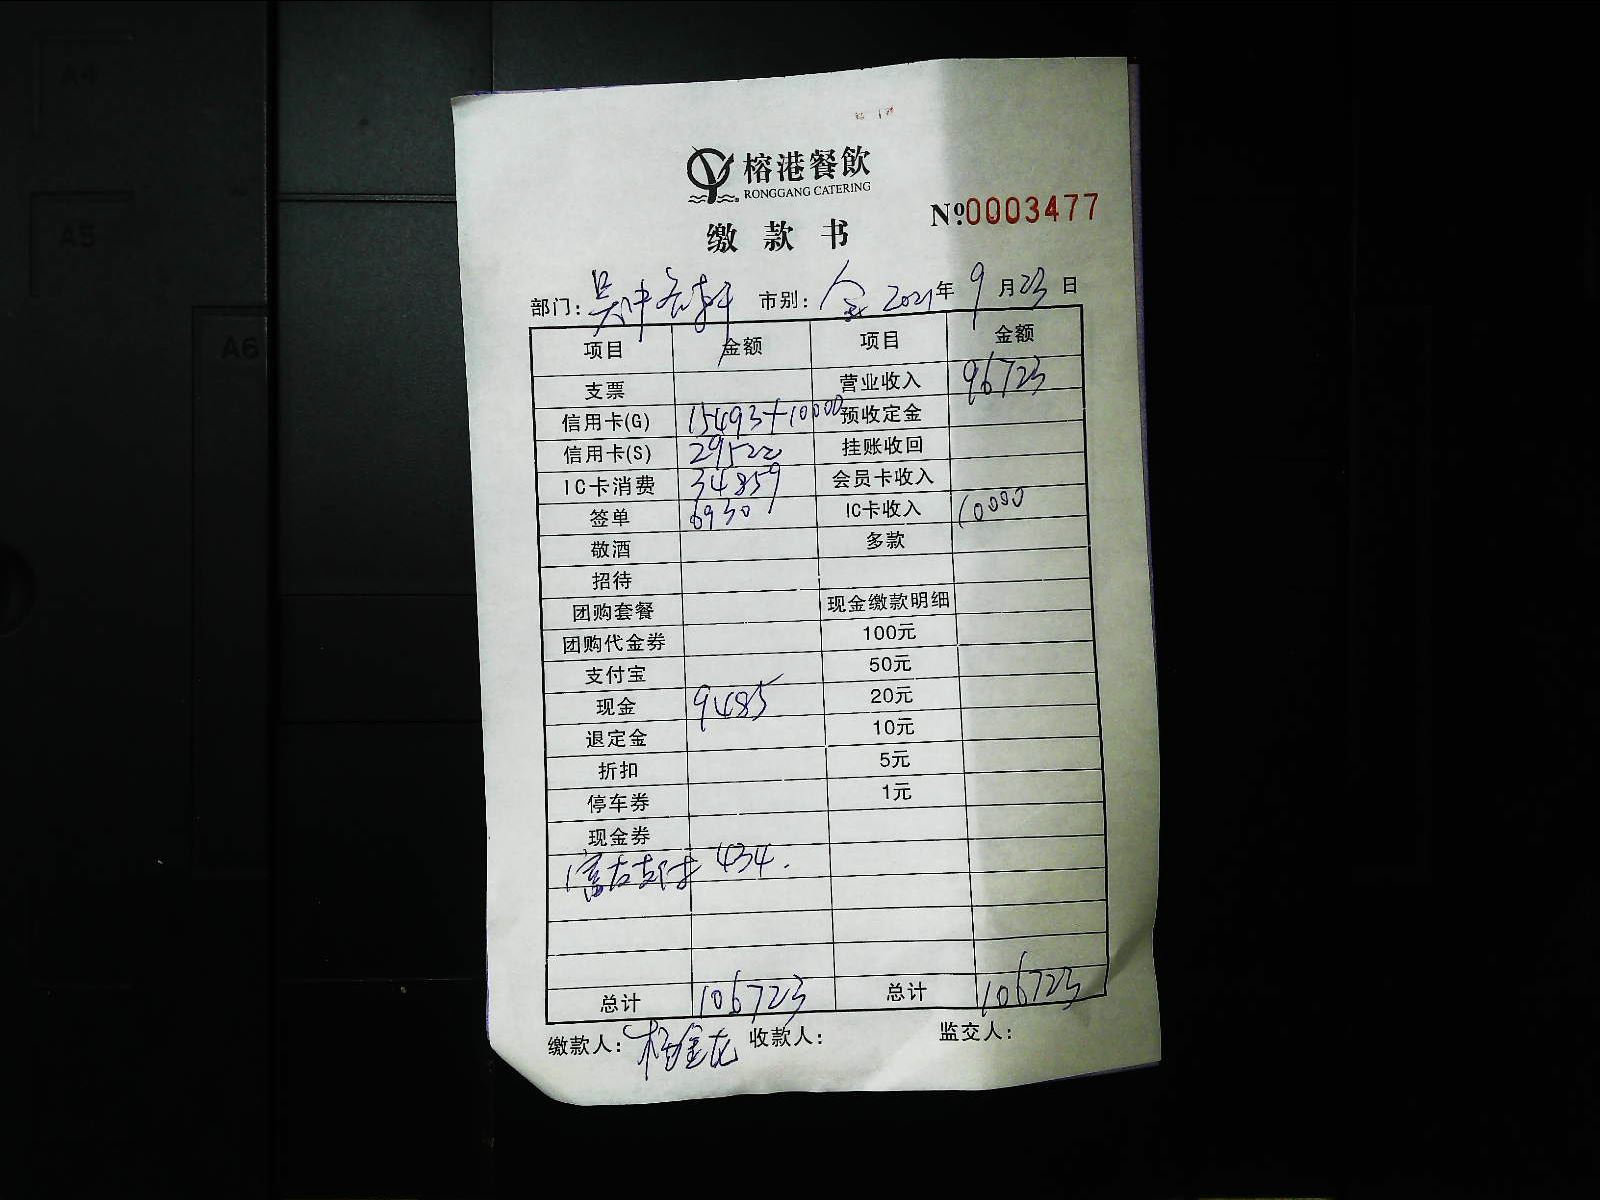 A4
A5
A6
榕港餐飲
RONGGANG CATERING
№0003477
缴款书
部门: 吴中 市别: 全 2021年 9月23日
项目 金额 项目 金额
支票 营业收入 96723
信用卡(G) 15493+10000 预收定金
信用卡(S) 29522 挂账收回
IC卡消费 34859 会员卡收入
签单 6930 IC卡收入 10000
敬酒 多款
招待
团购套餐 现金缴款明细
团购代金券 100元
支付宝 50元
现金 9485 20元
退定金 10元
折扣 5元
停车券 1元
现金券
富友支付 434.
总计 106723 总计 106723
缴款人: 收款人: 监交人: